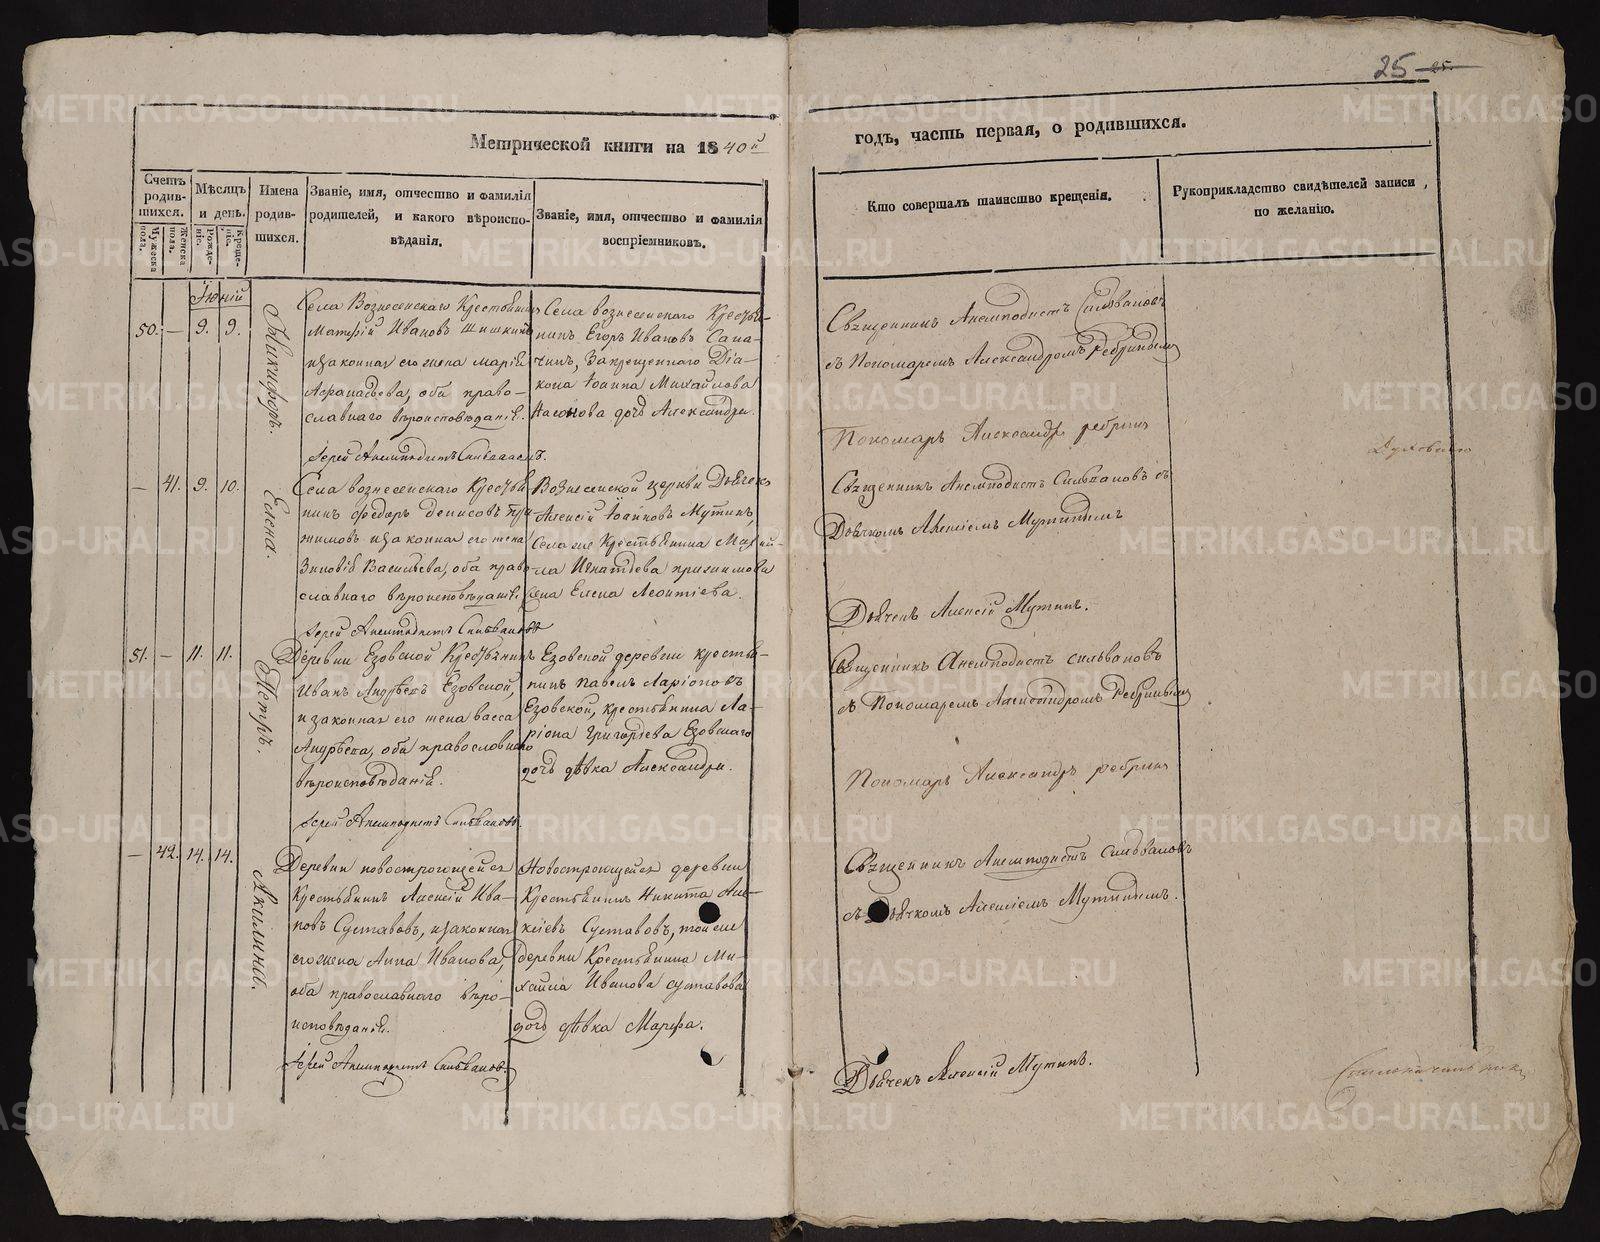 25 25.
Метрической книги на 1840й
годъ, часть первая, о родившихся.
Счетъ родив-шихся.
Мѣсяцъ и день.
Имена родив-шихся.
Званіе, имя, отчество и фамилія
родителей, и какого вѣроиспо-
вѣданія.
Званіе, имя, отчество и фамилія
воспріемниковъ.
Кто совершалъ таинство крещенія.
Рукоприкладство свидѣтелей записи
по желанію.
Мужеска пола.
Женска пола.
Рожде-ніе.
Креще-ніе.
Іюній
50. — 9. 9.
Никифоръ.
Села Вознесенскаго Крестьянинъ
Иванов Шишкинъ
и законная его жена Марія
Афанасьева, оба право-
славнаго вѣроисповѣданія.
Іерей Анемподистъ Сильвановъ.
Села вознесенскаго Крестья-
нинъ Егоръ Ивановъ
Запрещеннаго Діа-
кона Іоанна Михайлова
дочь Александра.
Священникъ Анемподистъ Сильвановъ
съ Пономаремъ Александромъ Ребринымъ
Пономарь Александръ Ребринъ
— 41. 9. 10.
Елена.
Села вознесенскаго Крестья-
нинъ Федоръ Денисовъ
и законная его жена
Зиновія Васильева, оба право-
славнаго вѣроисповѣданія
Іерей Анемподистъ Сильвановъ
Вознесенской церкви Дьячекъ
Алексій Іоанновъ Мутинъ,
Села же Крестьянина Михай-
ла Игнатьева
жена Елена Леонтіева.
Священникъ Анемподистъ Сильвановъ съ
Дьячкомъ Алексіемъ Мутинымъ
Дьячекъ Алексій Мутинъ.
51. — 11. 11.
Петръ.
Деревни Езовской Крестьянинъ
Иванъ Андреевъ Езовской,
и законная его жена Васса
Андреева, оба православнаго
вѣроисповѣданія.
Іерей Анемподистъ Сильвановъ.
Езовской деревни крестья-
нинъ Павелъ Ларіоновъ
Езовской, крестьянина Ла-
ріона Григорьева Езовскаго
дочь дѣвка Александра.
Священникъ Анемподистъ Сильвановъ
съ Пономаремъ Александромъ Ребринымъ
Пономарь Александръ Ребринъ
— 42. 14. 14.
Акилина.
Деревни новостроющейся
Крестьянинъ Алексій Ива-
новъ Суставовъ, и законная
его жена Анна Иванова,
оба православнаго вѣро-
исповѣданія.
Іерей Анемподистъ Сильвановъ.
Новостроющейся деревни
Крестьянинъ Никита Але-
ксіевъ Суставовъ, той же
деревни Крестьянина Ми-
хаила Иванова Суставова
дочь дѣвка Марфа.
Священникъ Анемподистъ Сильвановъ
съ Дьячкомъ Алексіемъ Мутинымъ.
Дьячекъ Алексій Мутинъ.
METRIKI.GASO-URAL.RU